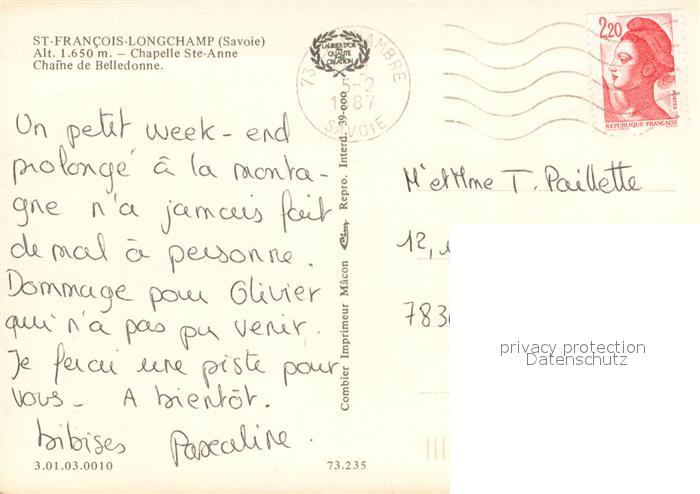 ST-FRANÇOIS-LONGCHAMP (Savoie)
Alt. 1.650 m. – Chapelle Ste-Anne
Chaîne de Belledonne.
Un petit week-end
prolongé à la monta-
gne n'a jamais fait
de mal à personne.
Dommage pour Olivier
qui n'a pas pu venir.
Je ferai une piste pour
vous. A bientôt.
bibises Pascaline.
3.01.03.0010
73.235
Combier Imprimeur Mâcon Cim Repro. Interd. 39-000
LAURIER D'OR
DE LA
QUALITE
CREATION
73
AMBRE
5-2
1987
SAVOIE
2,20
POSTES
REPUBLIQUE FRANÇAISE
Mr et Mme T. Paillette
12,
783
privacy protection
Datenschutz